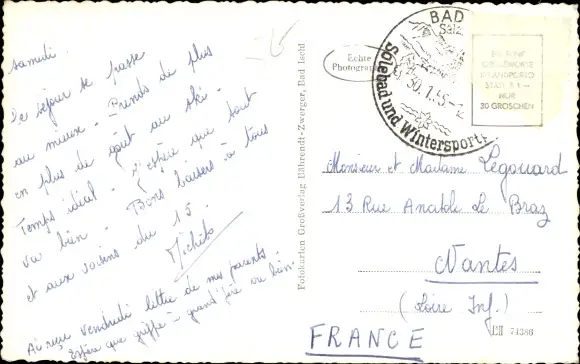 samedi.
Le séjour se passe
au mieux. Prends de plus
en plus de goût au ski.
Temps idéal. J'espère que tout
va bien. Bons baisers à tous
et aux voisins du 15.
Ai reçu vendredi lettre de mes parents
Espère que grippe - grand'père va bien.
Echte
Photographie
Fotokarten Großverlag Bährendt-Zwerger, Bad Ischl
BAD
Salz
30.1.55-12
Solebad und Wintersport
NUR
30 GROSCHEN
Monsieur et Madame Légouard
13 Rue Anatole Le Braz
Nantes
(Loire Inf.)
FRANCE
74386